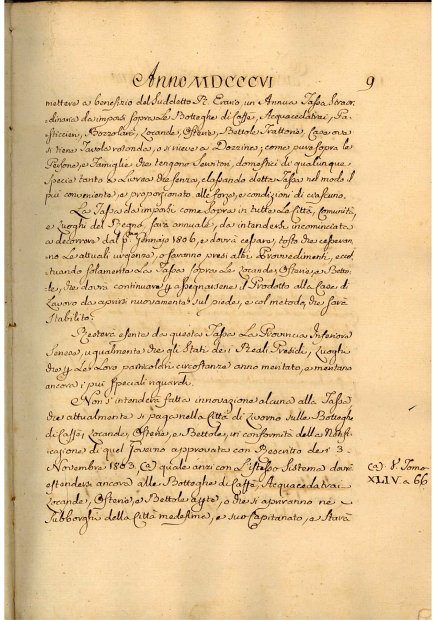 Anno MDCCCVI
9
mettere a benefizio del Suddetto R. Erario, un Annua Tassa Straor
dinaria da imporsi sopra le Botteghe di Caffè, Acquacedratai, Pa
sticcieri, Bozzolari, Locande, Osterie, Bettole, Trattorie, Case ove
si tiene Tavola rotonda, o si riceve a Dozzina; come pure sopra le
Persone, e Famiglie che tengono Servitori, domestici di qualunque
specie tanto a Livrea che senza, classando detta Tassa nel modo il
più conveniente, e proporzionato alle forze, e condizioni di ciascuno.
La Tassa da imporsi come sopra in tutte le Città, Comunità,
e Luoghi del Regno, sarà annuale, da intendersi incominciata
a decorrere dal p.mo Gennajo 1806, e dovrà cessare, tosto che cesseran
no le attuali urgenze, o saranno presi altri Provvedimenti, eccet
tuando solamente la Tassa sopra le Locande, Osterie, e Betto
le, che dovrà continuare p assegnarsene il Prodotto alle Case di
Lavoro da aprirsi nuovamente sul piede, e col metodo, che sarà
stabilito.
Resterà esente da questa Tassa la Provincia Inferiore
Senese, ugualmente che gli Stati dei Reali Presidj, Luoghi
che p le loro particolari circostanze anno meritato, e meritano
ancora i più speciali riguardi.
Non s'intenderà fatta innovazione alcuna alla Tassa
che attualmente si paga nella Città di Livorno sulle Botteghe
di Caffè, Locande, Osterie, e Bettole, in conformità della Notifi
cazione di quel Governo approvata con Rescritto de' 3.
Novembre 1803, (a) quale anzi con l'istesso sistema dovrà
estendersi ancora alle Botteghe di Caffè, Acquacedratai
Locande, Osterie, e Bettole aperte, o che si apriranno ne
Subborghi della Città medesima, e suo Capitanato, e starà
(a) V. Tomo
XLIV. a 66